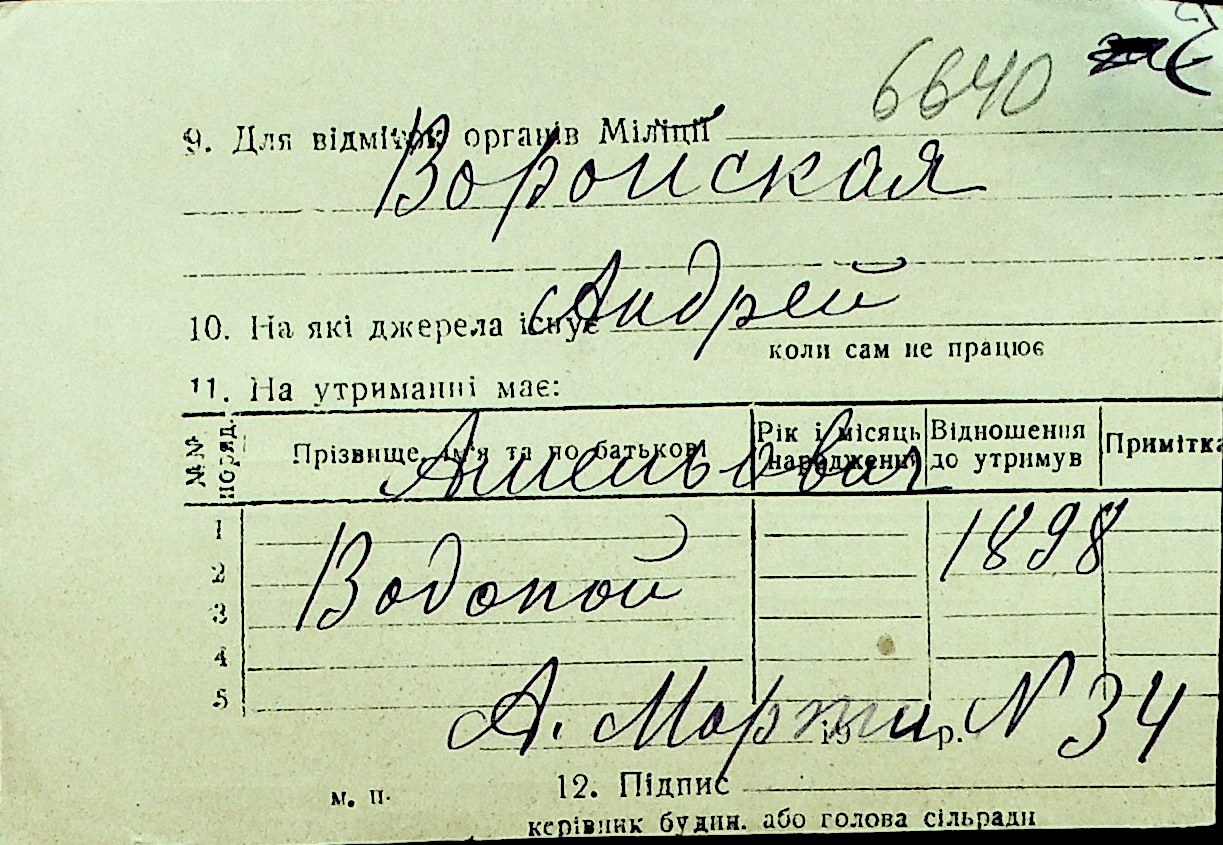 6640
9. Для відміток органів Міліції
Воронская
10. На які джерела існує
Андрей
коли сам не працює
11. На утриманні має:
№№ поряд.
Прізвище, ім'я та по батькові
Рік і місяць народження
Відношення до утримув
Примітка
1
1898
2
Водопой
3
4
5
А. Марти N 34
19 р.
м. п.
12. Підпис
керівник будин. або голова сільради